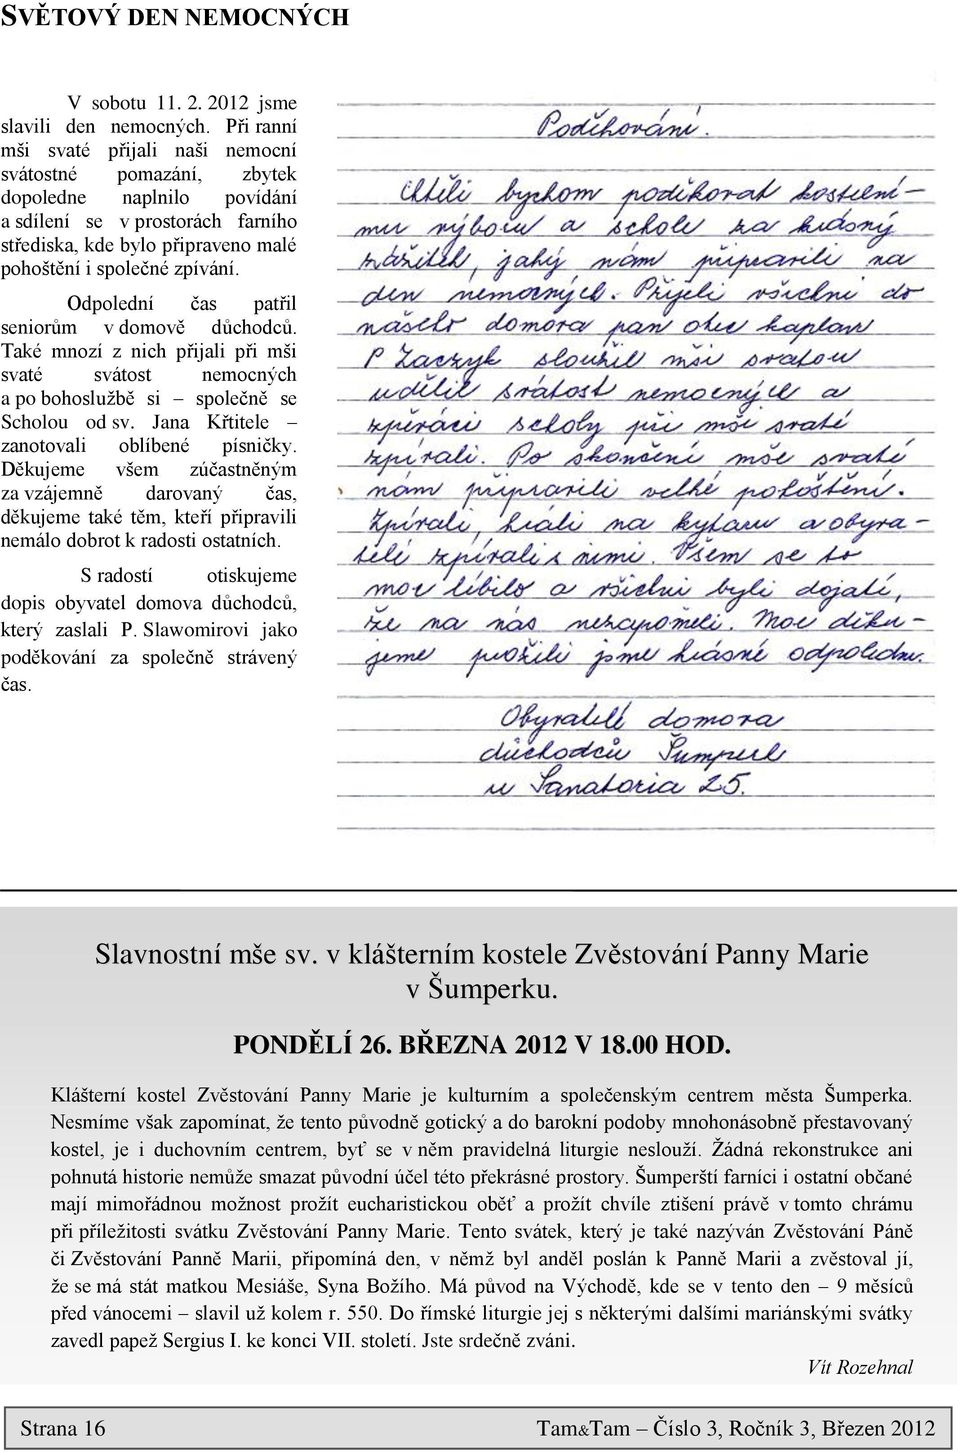 SVĚTOVÝ DEN NEMOCNÝCH
V sobotu 11. 2. 2012 jsme
slavili den nemocných. Při ranní
mši svaté přijali naši nemocní
svátostné pomazání, zbytek
dopoledne naplnilo povídání
a sdílení se v prostorách farního
střediska, kde bylo připraveno malé
pohoštění i společné zpívání.
Odpolední čas patřil
seniorům v domově důchodců.
Také mnozí z nich přijali při mši
svaté svátost nemocných
a po bohoslužbě si – společně se
Scholou od sv. Jana Křtitele –
zanotovali oblíbené písničky.
Děkujeme všem zúčastněným
za vzájemně darovaný čas,
děkujeme také těm, kteří připravili
nemálo dobrot k radosti ostatních.
S radostí otiskujeme
dopis obyvatel domova důchodců,
který zaslali P. Slawomirovi jako
poděkování za společně strávený
čas.
Poděkování.
Chtěli bychom poděkovat kostelní–
mu výboru a schole za krásný
zážitek, jaký nám připravili na
den nemocných. Přijeli všichni do
našeho domova pan otec kaplan
P Zaczyk sloužil mši svatou
udělil svátost nemocných a
zpěváci scholy při mši svaté
zpívali. Po skončení mše svaté
nám připravili velké pohoštění.
Zpívali, hráli na kytaru a obyva-
telé zpívali s nimi. Všem se to
moc líbilo a všichni byli dojatí,
že na nás nezapoměli. Moc děku-
jeme prožili jsme krásné odpoledne.
Obyvatelé domova
důchodců Šumperk
u Sanatoria 25.
Slavnostní mše sv. v klášterním kostele Zvěstování Panny Marie
v Šumperku.
PONDĚLÍ 26. BŘEZNA 2012 V 18.00 HOD.
Klášterní kostel Zvěstování Panny Marie je kulturním a společenským centrem města Šumperka.
Nesmíme však zapomínat, že tento původně gotický a do barokní podoby mnohonásobně přestavovaný
kostel, je i duchovním centrem, byť se v něm pravidelná liturgie neslouží. Žádná rekonstrukce ani
pohnutá historie nemůže smazat původní účel této překrásné prostory. Šumperští farníci i ostatní občané
mají mimořádnou možnost prožít eucharistickou oběť a prožít chvíle ztišení právě v tomto chrámu
při příležitosti svátku Zvěstování Panny Marie. Tento svátek, který je také nazýván Zvěstování Páně
či Zvěstování Panně Marii, připomíná den, v němž byl anděl poslán k Panně Marii a zvěstoval jí,
že se má stát matkou Mesiáše, Syna Božího. Má původ na Východě, kde se v tento den – 9 měsíců
před vánocemi – slavil už kolem r. 550. Do římské liturgie jej s některými dalšími mariánskými svátky
zavedl papež Sergius I. ke konci VII. století. Jste srdečně zváni.
Vít Rozehnal
Strana 16 Tam&Tam – Číslo 3, Ročník 3, Březen 2012